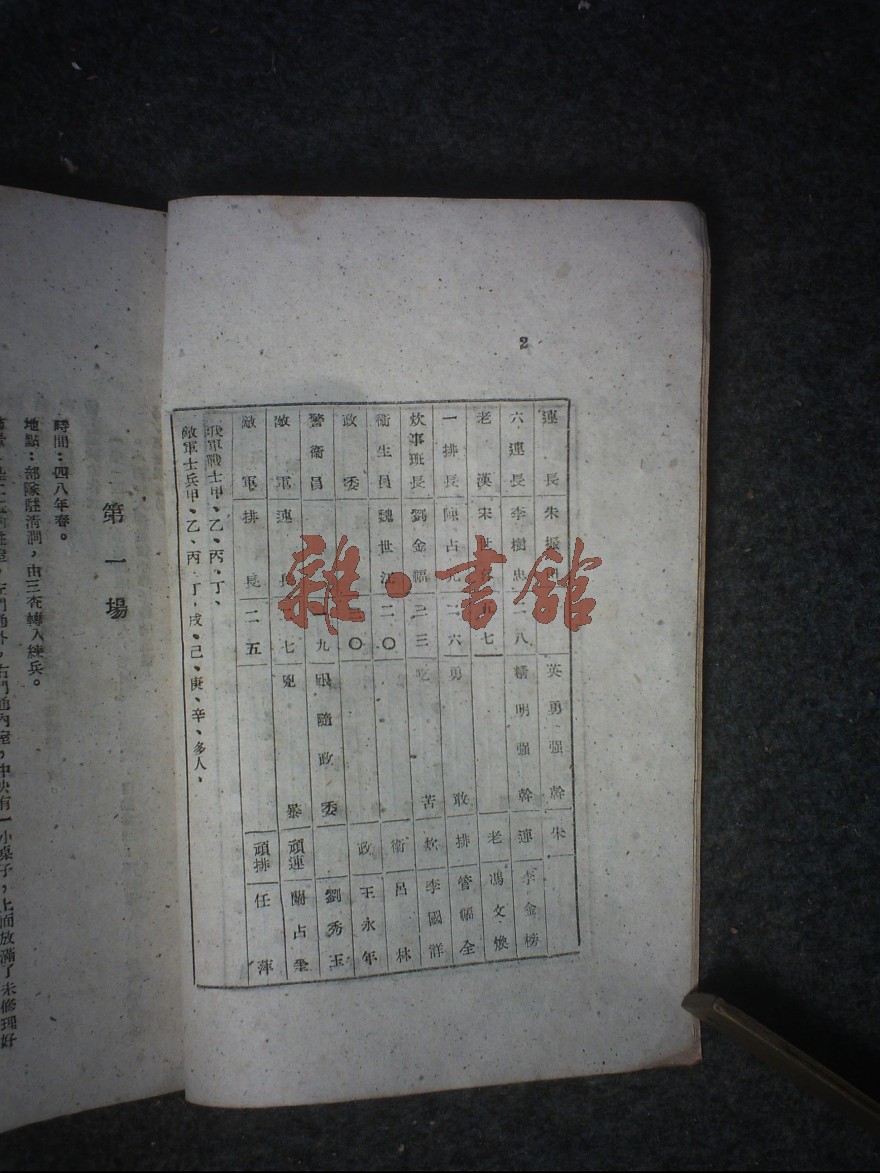 2
連長 朱振 英勇强幹 朱
六連長 李樹忠 二八 精明强幹 連 李金榜
老漢 宋世 七 老 馮文煥
一排長 陳占元 二六 勇敢 排 管福全
炊事班長 劉金福 二三 吃苦 炊 李國祥
衛生員 魏世江 二〇 衛 呂林
政委 〇 政 王永年
警衛員 九 跟隨政委 劉秀玉
敵軍連長 七 兇暴 頑連 關占奎
敵軍排長 二五 頑排 任萍
我軍戰士甲、乙、丙、丁、
敵軍士兵甲、乙、丙、丁、戌、己、庚、辛、多人、
第一場
時間：四八年春。
地點：部隊駐清澗，由三查轉入練兵。
左門通外，右門通內室，中央有一小桌子，上面放滿了未修理好
雜·書館